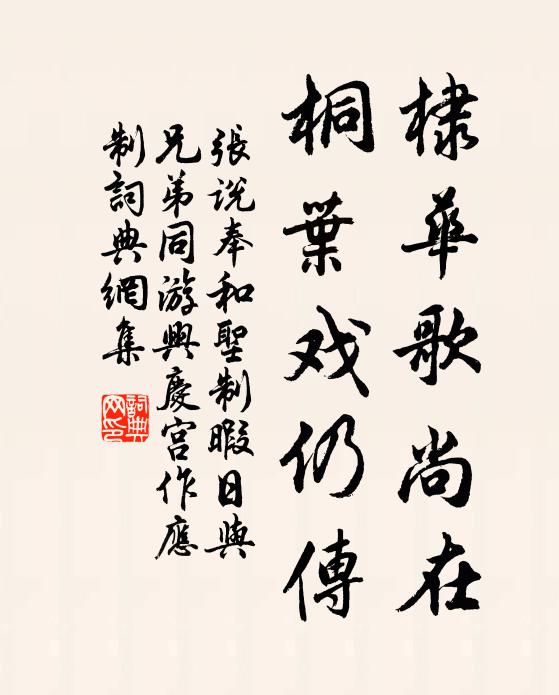 棣華歌尚在
桐葉戏仍傳
張説奉和聖制暇日與
兄弟同游興慶宮作應
制詞典網集
詞典網印